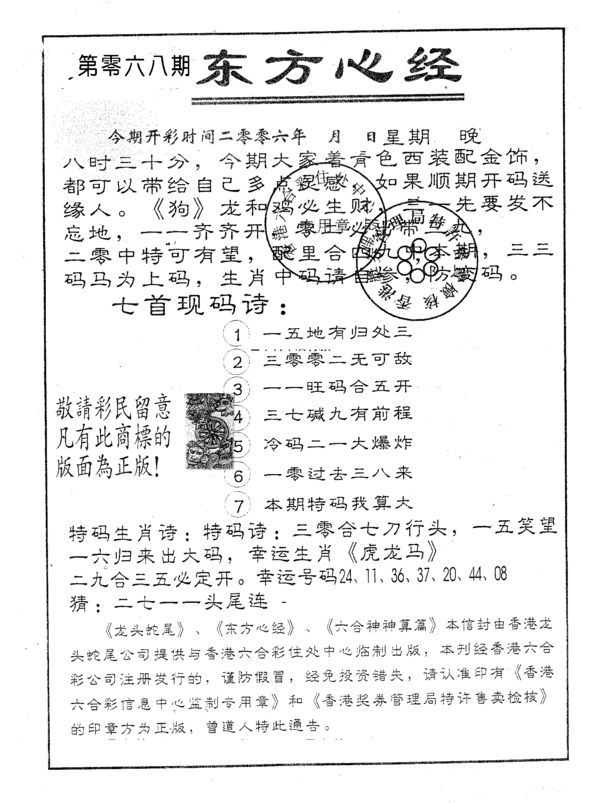 第零六八期 东方心经
今期开彩时间二零零六年 月 日星期 晚
八时三十分，今期大家着青色西装配金饰，
都可以带给自己多点灵感，如果顺期开码送
缘人。《狗》龙和鸡必生财，三一先要发不
忘地，一一齐齐开，零二必出带三九，
二零中特可有望，配里合四九中本期，三三
码马为上码，生肖中码请自参，防变码。
七首现码诗：
1 一五地有归处三
2 三零零二无可敌
3 一一旺码合五开
4 三七碱九有前程
5 冷码二一大爆炸
6 一零过去三八来
7 本期特码我算大
敬請彩民留意
凡有此商標的
版面為正版!
特码生肖诗：特码诗：三零合七刀行头，一五笑望
一六归来出大码，幸运生肖《虎龙马》
二九合三五必定开。幸运号码24、11、36、37、20、44、08
猜：二七一一头尾连 -
《龙头蛇尾》、《东方心经》、《六合神神算篇》本信封由香港龙
头蛇尾公司提供与香港六合彩住处中心临制出版，本刊经香港六合
彩公司注册发行的，谨防假冒，经免投资错失，请认准印有《香港
六合彩信息中心监制专用章》和《香港奖券管理局特许售卖检核》
的印章方为正版，曾道人特此通告。